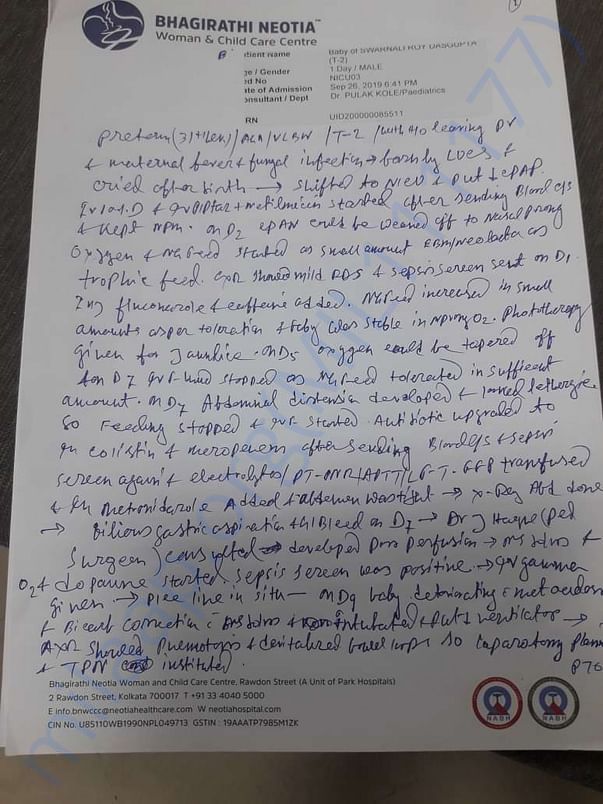 BHAGIRATHI NEOTIA™
Woman & Child Care Centre
tient Name
Baby of SWARNALI ROY DASGUPTA
(T-2)
ge / Gender
1 Day / MALE
d No
NICU03
ate of Admission
Sep 26, 2019 6:41 PM
onsultant / Dept
Dr. PULAK KOLE/Paediatrics
RN
UID20000085511
Preterm (31+1 wk) / AGA / VLBW / T-2 / with H/o leaking PV
& maternal fever & fungal infection → born by LUCS &
cried after birth → shifted to NICU & put CPAP.
started after sending Blood c/s
& kept NPM. on D2 CPAP could be weaned off to Nasal prong
Oxygen & NG feed started as small amount EBM/neolacta as
trophic feed. CXR showed mild RDS & sepsis screen sent on D1
Inj fluconazole & caffeine added. NG feed increased in small
amounts as per toleration & baby was stable in Nprong O2. Phototherapy
given for Jaundice. on D5 oxygen could be tapered off
& on D7 stopped as NG feed tolerated in sufficient
amount. on D7 Abdominal distension developed & looked lethargic.
So Feeding stopped & IVF started. Antibiotic upgraded to
colistin & meropenem after sending Blood c/s & sepsis
screen again & electrolytes / PT-INR/APTT/LFT. FFP transfused
& Metronidazole Added & abdomen was tight → X-Ray Abd done
→ Bilious gastric aspiration & GI Bleed on D7 → Dr J Haque (Ped
Surgeon) consulted → developed poor perfusion → &
O2 & dopamine started. sepsis screen was positive. →
given → picc line in situ — on D9 baby deteriorating
& Bicarb correction & intubated & put ventilator →
AXR showed & bowel loops so laparotomy
& TPN instituted.
PTO
Bhagirathi Neotia Woman and Child Care Centre, Rawdon Street (A Unit of Park Hospitals)
2 Rawdon Street, Kolkata 700017 T +91 33 4040 5000
E info.bnwccc@neotiahealthcare.com W neotiahospital.com
CIN No. U85110WB1990NPL049713 GSTIN : 19AAATP7985M1ZK
NABH
NABH